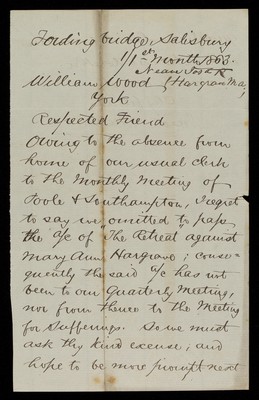 Fordingbridge, Salisbury
1/1st Month 1868.
Near York
William Wood (Hargrave Ma;
York
Respected Friend
Owing to the absence from
home of our usual Clerk
to the Monthly Meeting of
Poole & Southampton, I regret
to say we omitted to pass
the a/c of "The Retreat" against
Mary Ann Hargrave; conse-
quently the said a/c has not
been to our Quarterly Meeting,
nor from thence to the Meeting
for Sufferings. So we must
ask thy kind excuse; and
hope to be more prompt next